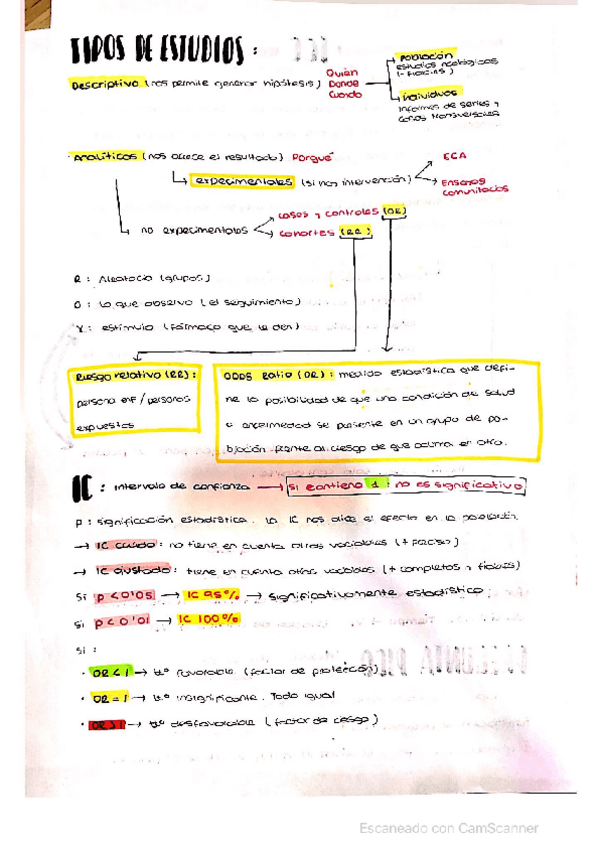 TIPOS DE ESTUDIOS:
Descriptivo (nos permite generar hipótesis) Quién
Donde
Cuando
Población
estudios ecológicos
Individuos
Informes de series y
casos transversales
Analíticos (nos ofrece el resultado) Porqué
experimentales (si hay intervención)
ECA
Ensayos
comunitarios
no experimentales
casos y controles (OR)
cohortes (RR)
R: Aleatorio (grupos)
O: lo que observo (el seguimiento)
X: estímulo (fármaco que le den)
Riesgo relativo (RR):
persona enf / personas
expuestas
ODDS Ratio (OR): medida estadística que defi-
ne la posibilidad de que una condición de salud
o enfermedad se presente en un grupo de po-
blación frente al riesgo de que ocurra en otro.
IC: Intervalo de confianza → si contiene 1: no es significativo
p: significación estadística. La IC nos dice el efecto en la población.
→ IC crudo: no tiene en cuenta otras variables (+ preciso)
→ IC ajustado: tiene en cuenta otras variables (+ completos y fiables)
Si p < 0'05 → IC 95% → significativamente estadístico
Si p < 0'01 → IC 100%
Si:
· OR < 1 → favorable (factor de protección)
· OR = 1 → insignificante. Todo igual
· OR > 1 → desfavorable (factor de riesgo)
Escaneado con CamScanner